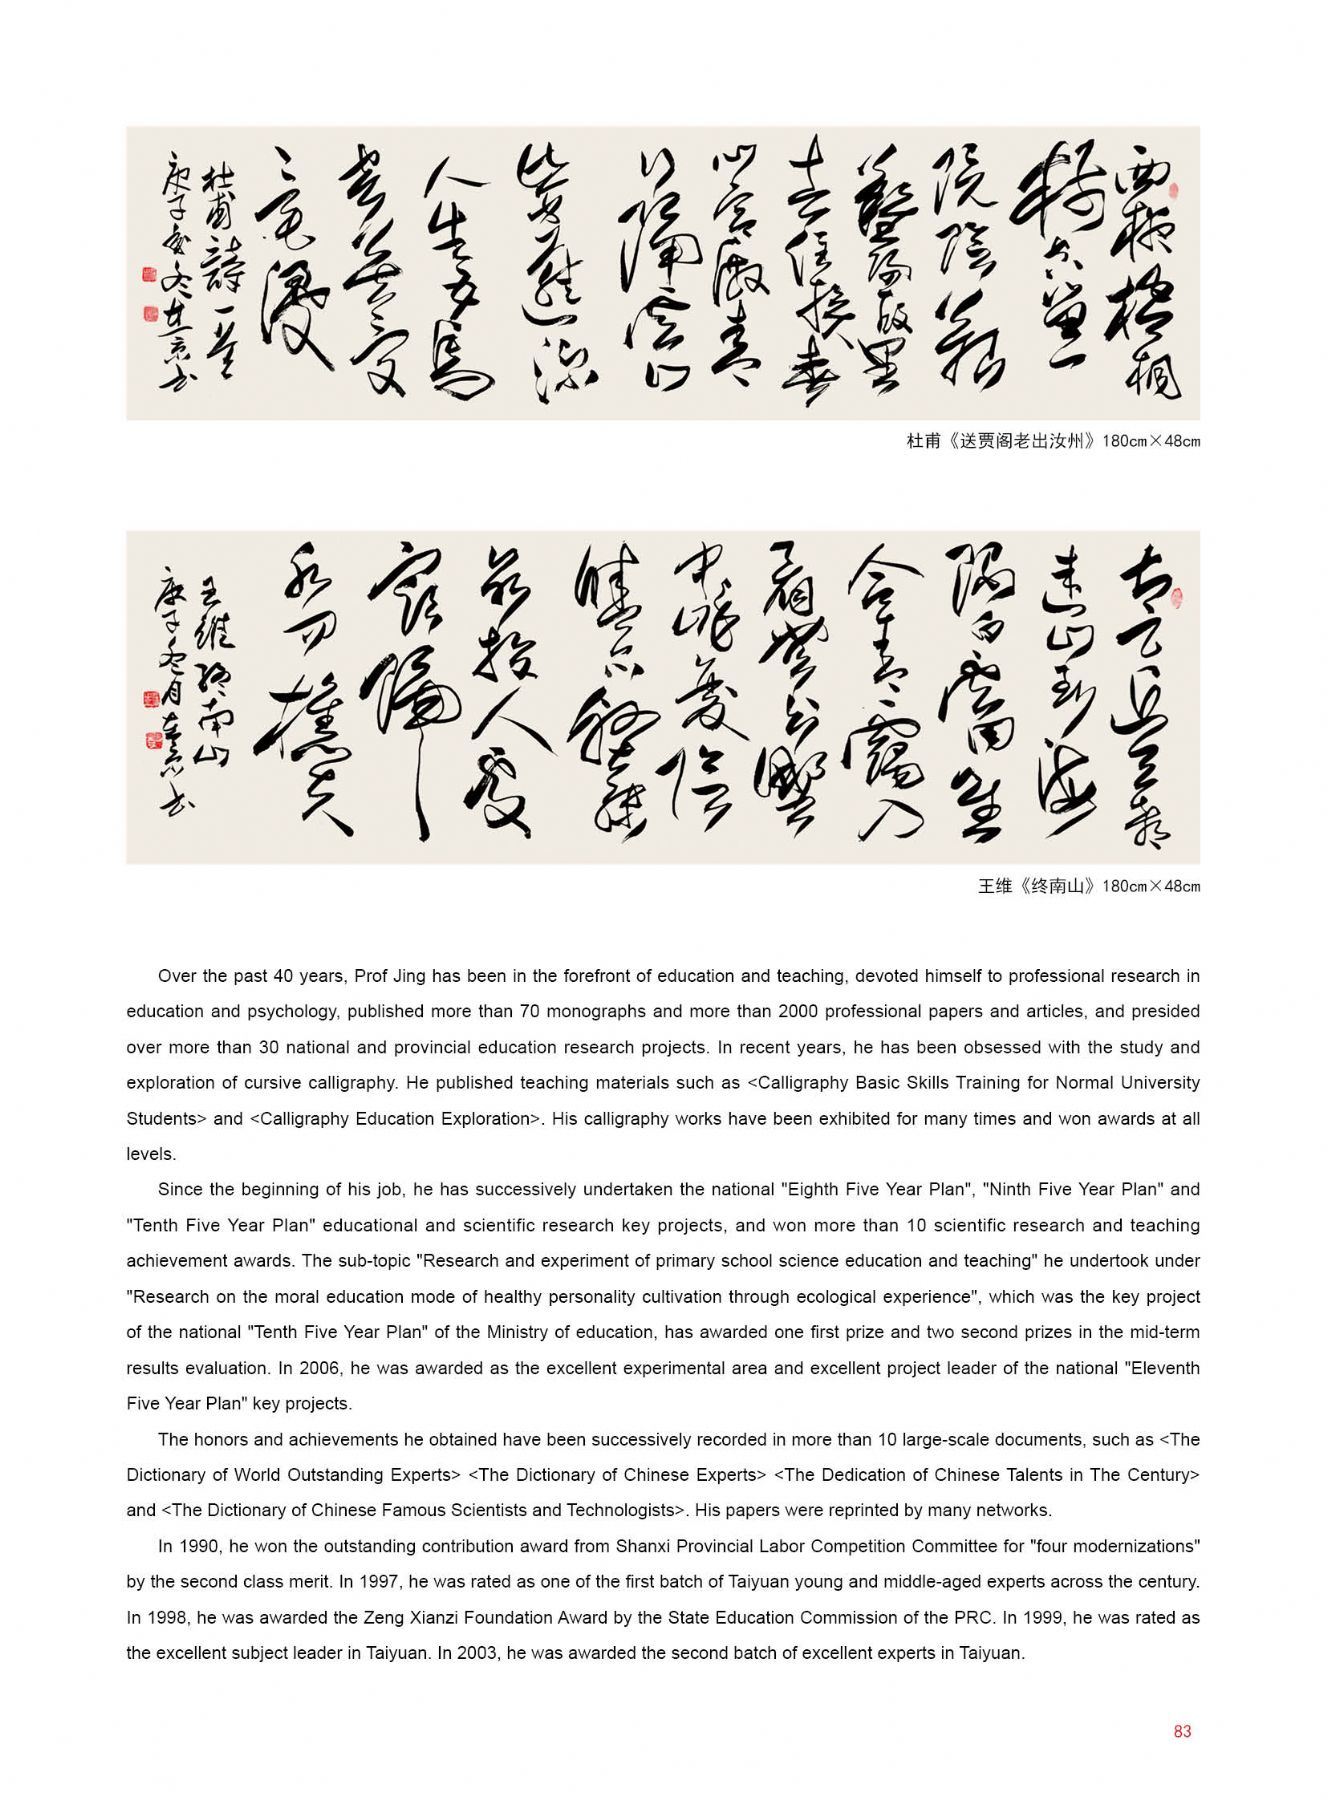 西掖梧桐
樹空留一
院陰艱
難歸故里
去住損春
心宮殿青
门隔雲山
紫邏深
人生五馬
貴莫受
二毛侵
杜甫詩一首
庚子冬书
杜甫《送贾阁老出汝州》180cm×48cm
太乙近天都
連山到海
隅白雲回望
合青靄入
看無分野
中峰變陰
晴眾壑殊
欲投人處
宿隔
水问樵夫
王維終南山
庚子冬月书
王维《终南山》180cm×48cm
Over the past 40 years, Prof Jing has been in the forefront of education and teaching, devoted himself to professional research in
education and psychology, published more than 70 monographs and more than 2000 professional papers and articles, and presided
over more than 30 national and provincial education research projects. In recent years, he has been obsessed with the study and
exploration of cursive calligraphy. He published teaching materials such as <Calligraphy Basic Skills Training for Normal University
Students> and <Calligraphy Education Exploration>. His calligraphy works have been exhibited for many times and won awards at all
levels.
Since the beginning of his job, he has successively undertaken the national "Eighth Five Year Plan", "Ninth Five Year Plan" and
"Tenth Five Year Plan" educational and scientific research key projects, and won more than 10 scientific research and teaching
achievement awards. The sub-topic "Research and experiment of primary school science education and teaching" he undertook under
"Research on the moral education mode of healthy personality cultivation through ecological experience", which was the key project
of the national "Tenth Five Year Plan" of the Ministry of education, has awarded one first prize and two second prizes in the mid-term
results evaluation. In 2006, he was awarded as the excellent experimental area and excellent project leader of the national "Eleventh
Five Year Plan" key projects.
The honors and achievements he obtained have been successively recorded in more than 10 large-scale documents, such as <The
Dictionary of World Outstanding Experts> <The Dictionary of Chinese Experts> <The Dedication of Chinese Talents in The Century>
and <The Dictionary of Chinese Famous Scientists and Technologists>. His papers were reprinted by many networks.
In 1990, he won the outstanding contribution award from Shanxi Provincial Labor Competition Committee for "four modernizations"
by the second class merit. In 1997, he was rated as one of the first batch of Taiyuan young and middle-aged experts across the century.
In 1998, he was awarded the Zeng Xianzi Foundation Award by the State Education Commission of the PRC. In 1999, he was rated as
the excellent subject leader in Taiyuan. In 2003, he was awarded the second batch of excellent experts in Taiyuan.
83